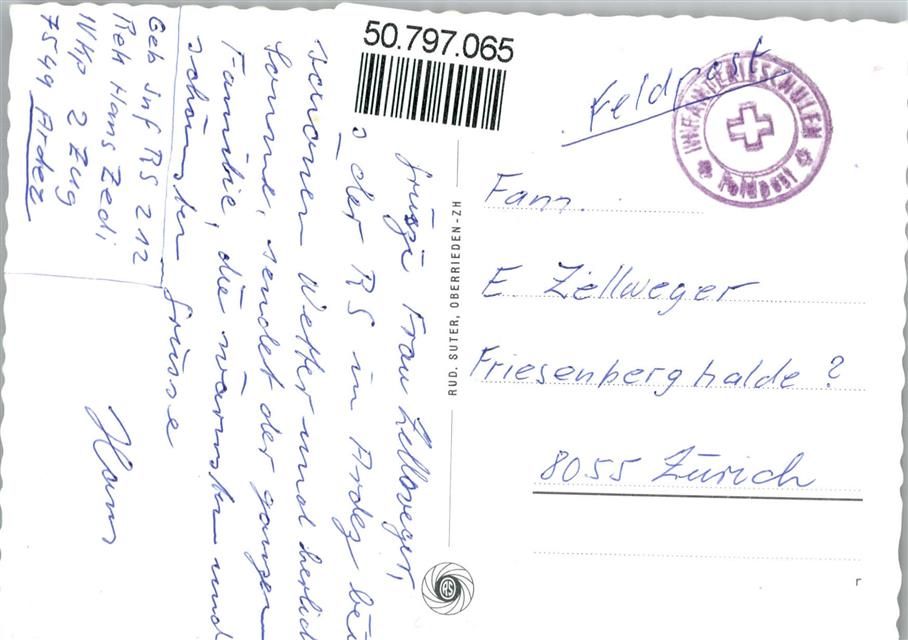 50.797.065
Feldpost
INFANTERIESCHULEN
Feldpost
Fam.
E. Zellweger
Friesenberghalde ?
8055 Zürich
RUD. SUTER, OBERRIEDEN-ZH
RS
r
Geb Inf RS 212
Rek Hans Zedi
IV Kp 2 Zug
7549 Ardez
Grüezi Frau Zellweger,
der RS in Ardez bei
schönem Wetter und herrlich
Sonne, sendet der ganzen
Familie, die wärmsten und
schönsten Grüsse
Hans